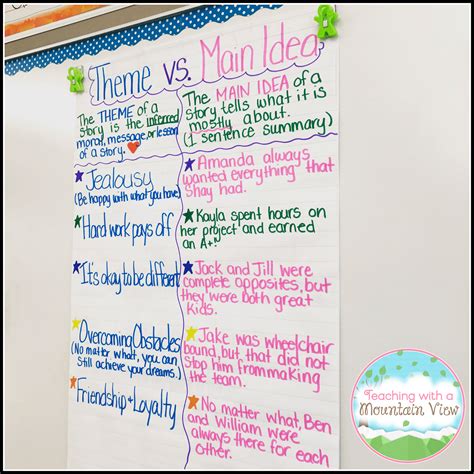 Theme vs. Main Idea
The THEME of a
story is the inferred
moral, message, or lesson
of a story.
The MAIN IDEA of a
story tells what it is
mostly about.
(1 sentence summary)
Jealousy
(Be happy with what you have)
Amanda always
wanted everything that
Shay had.
Hard work pays off
Kayla spent hours on
her project and earned
an A+
It's okay to be different
Jack and Jill were
complete opposites, but
they were both great
kids.
Overcoming Obstacles
(No matter what, you can
still achieve your dreams.)
Jake was wheelchair
bound, but that did not
stop him from making
the team.
Friendship & Loyalty
No matter what, Ben
and William were
always there for each
Teaching with a
Mountain View